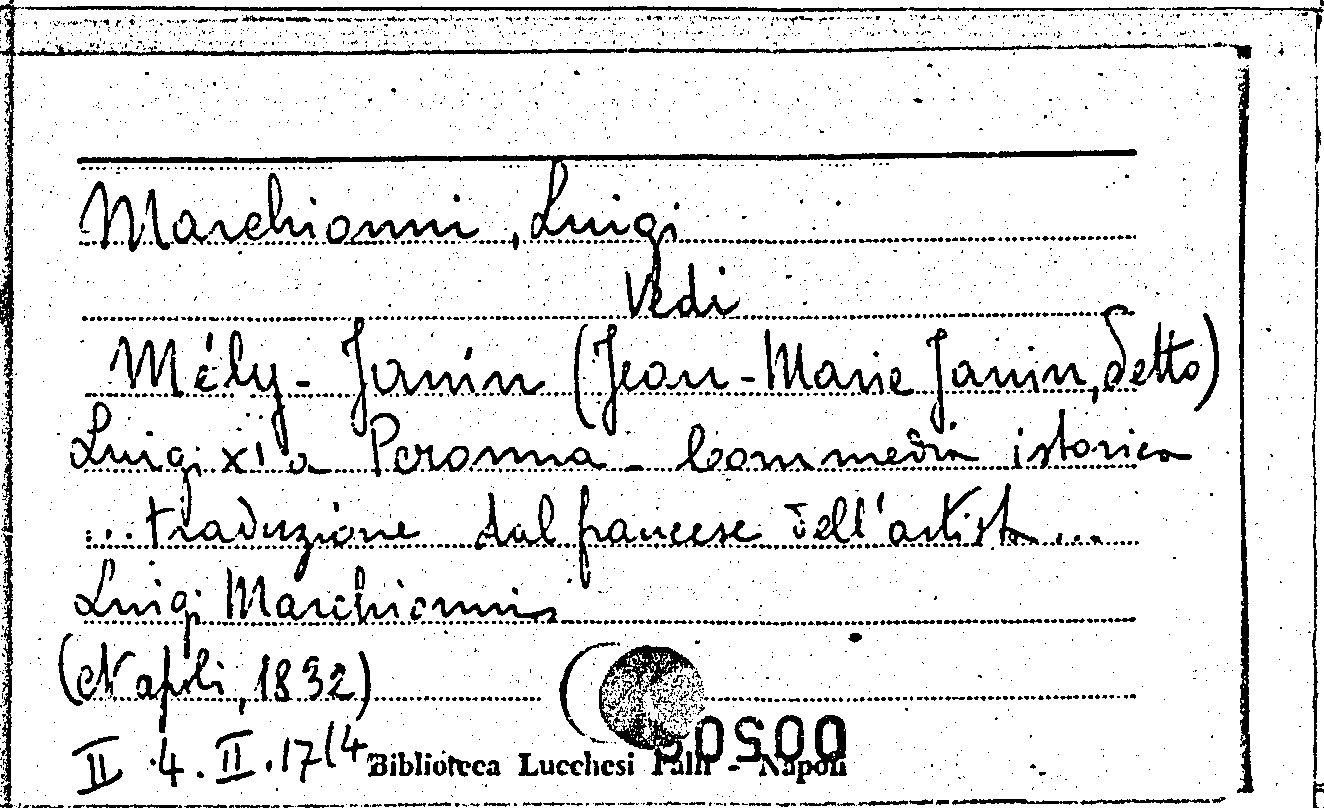 Marchionni, Luigi
Vedi
Mély-Janin (Jean-Marie Janin, detto)
Luigi XI a Peronna - Commedia istorica
...traduzione dal francese dell'artista...
Luigi Marchionni
(Napoli, 1832)
II .4. II .17(4
Biblioteca Lucchesi Palli - Napoli